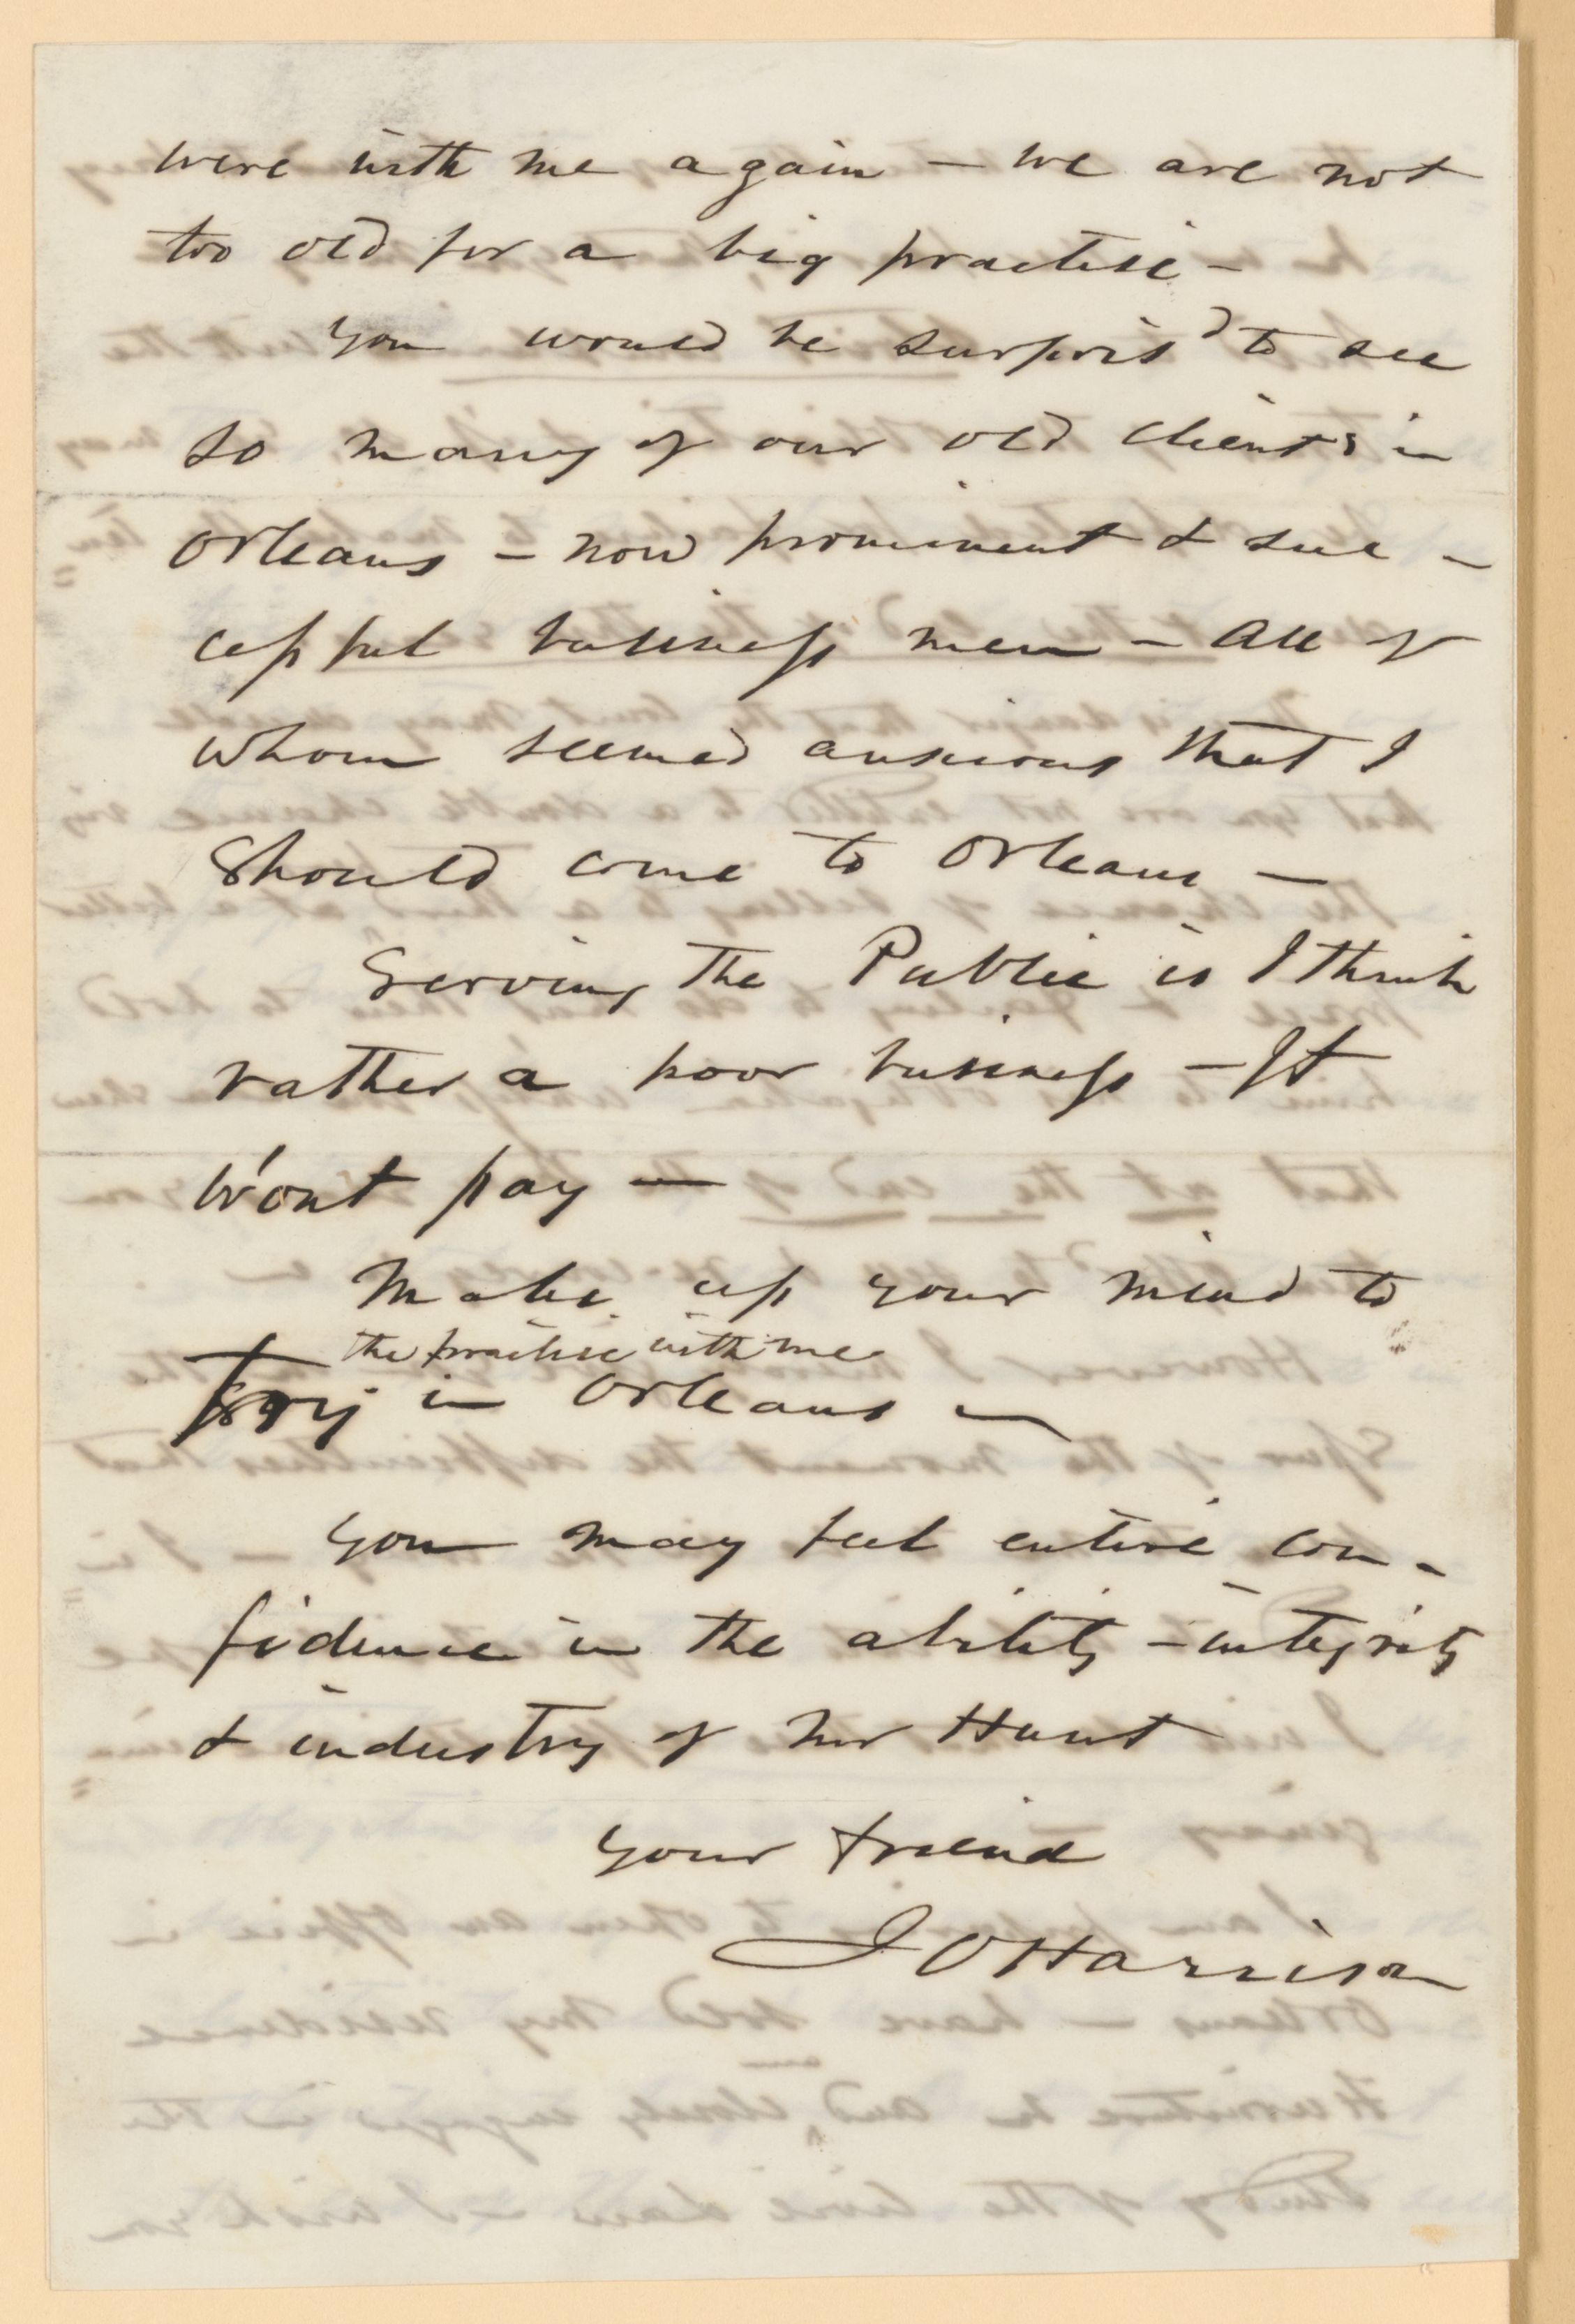 were with me again – we are not
too old for a big practise –
You would be surpris'd to see
so many of our old clients in
Orleans – now prominent & suc –
cessful business men – All of
whom seemed anxious that I
should come to Orleans –
Serving the Public is I think
rather a poor business – It
w'ont pay –
Make up your mind to
the practise with me
try in Orleans –
You may feel entire con –
fidence in the ability – integrity
& industry of Mr Hunt
Your friend
J O Harrison